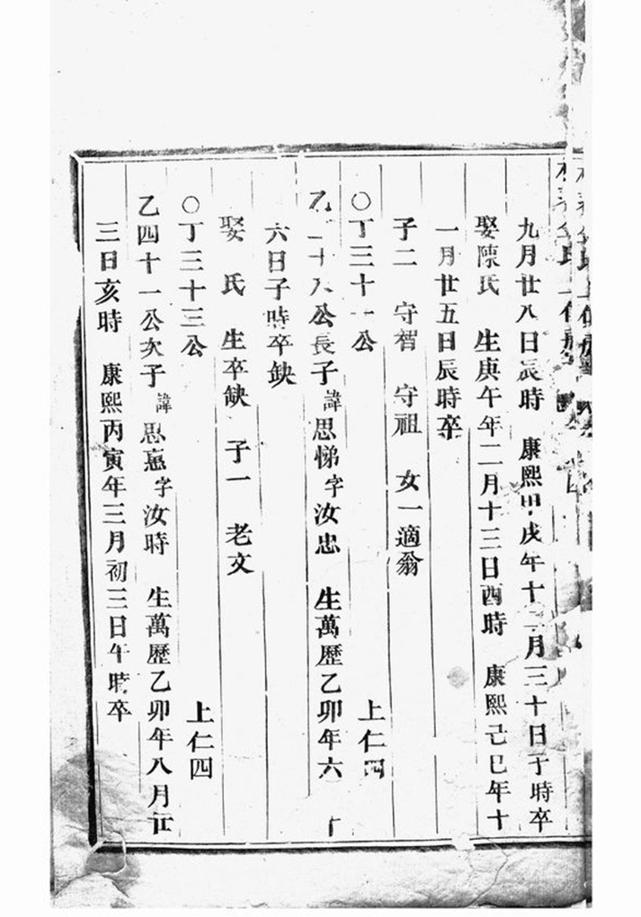 九月廿八日辰時 康熙甲戌年十二月三十日子時卒
娶陳氏 生庚午年二月十三日酉時 康熙己巳年十
一月廿五日辰時卒
子二 守智 守祖 女一適翁
○丁三十一公 上仁四
乙二十八公長子諱思悌字汝忠 生萬歷乙卯年六 十
六日子時卒缺
娶 氏 生卒缺 子一 老文
○丁三十三公 上仁四
乙四十一公次子諱思 字汝時 生萬歷乙卯年八月廿
三日亥時 康熙丙寅年三月初三日午時卒